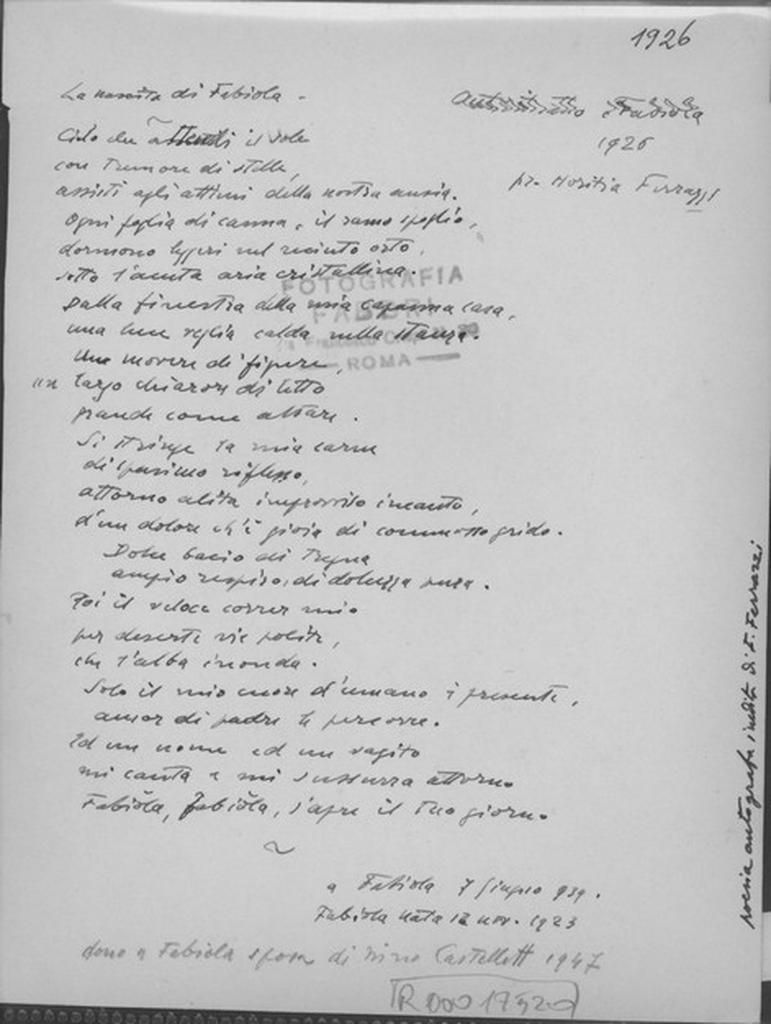 1926
La nascita di Fabiola -
Autoritratto e Fabiola
1926
pr. Horitia Ferrazzi
Cielo che attendi il sole
con tremore di stelle,
assisti agli attimi della nostra ansia.
Ogni foglia di canna, e il ramo spoglio,
dormono leggeri nel recinto orto,
sotto l'acuta aria cristallina.
Dalla finestra della mia capanna casa,
una luce veglia calda nella stanza.
Un movere di figure,
un largo chiarore di letto
grande come altare.
Si stringe la mia carne
di spasimo riflesso,
attorno alita improvviso incanto,
d'un dolore ch'è gioia di commosso grido.
Dolce bacio di tregua
ampio respiro, di dolcezza pura.
Poi il veloce correr mio
per deserte vie polite,
che l'alba inonda.
Solo il mio cuore d'umano è presente,
amor di padre le percorre.
Ed un nome ed un vagito
mi canta e mi sussurra attorno
Fabiola, Fabiola, s'apre il tuo giorno
a Fabiola 7 Giugno 939.
Fabiola nata 12 nov. 1923
dono a Fabiola sposa di Nino Castelletti 1947
R 000 17520
FOTOGRAFIA
FABBRI
ROMA
poesia autografa inedita di F. Ferrazzi